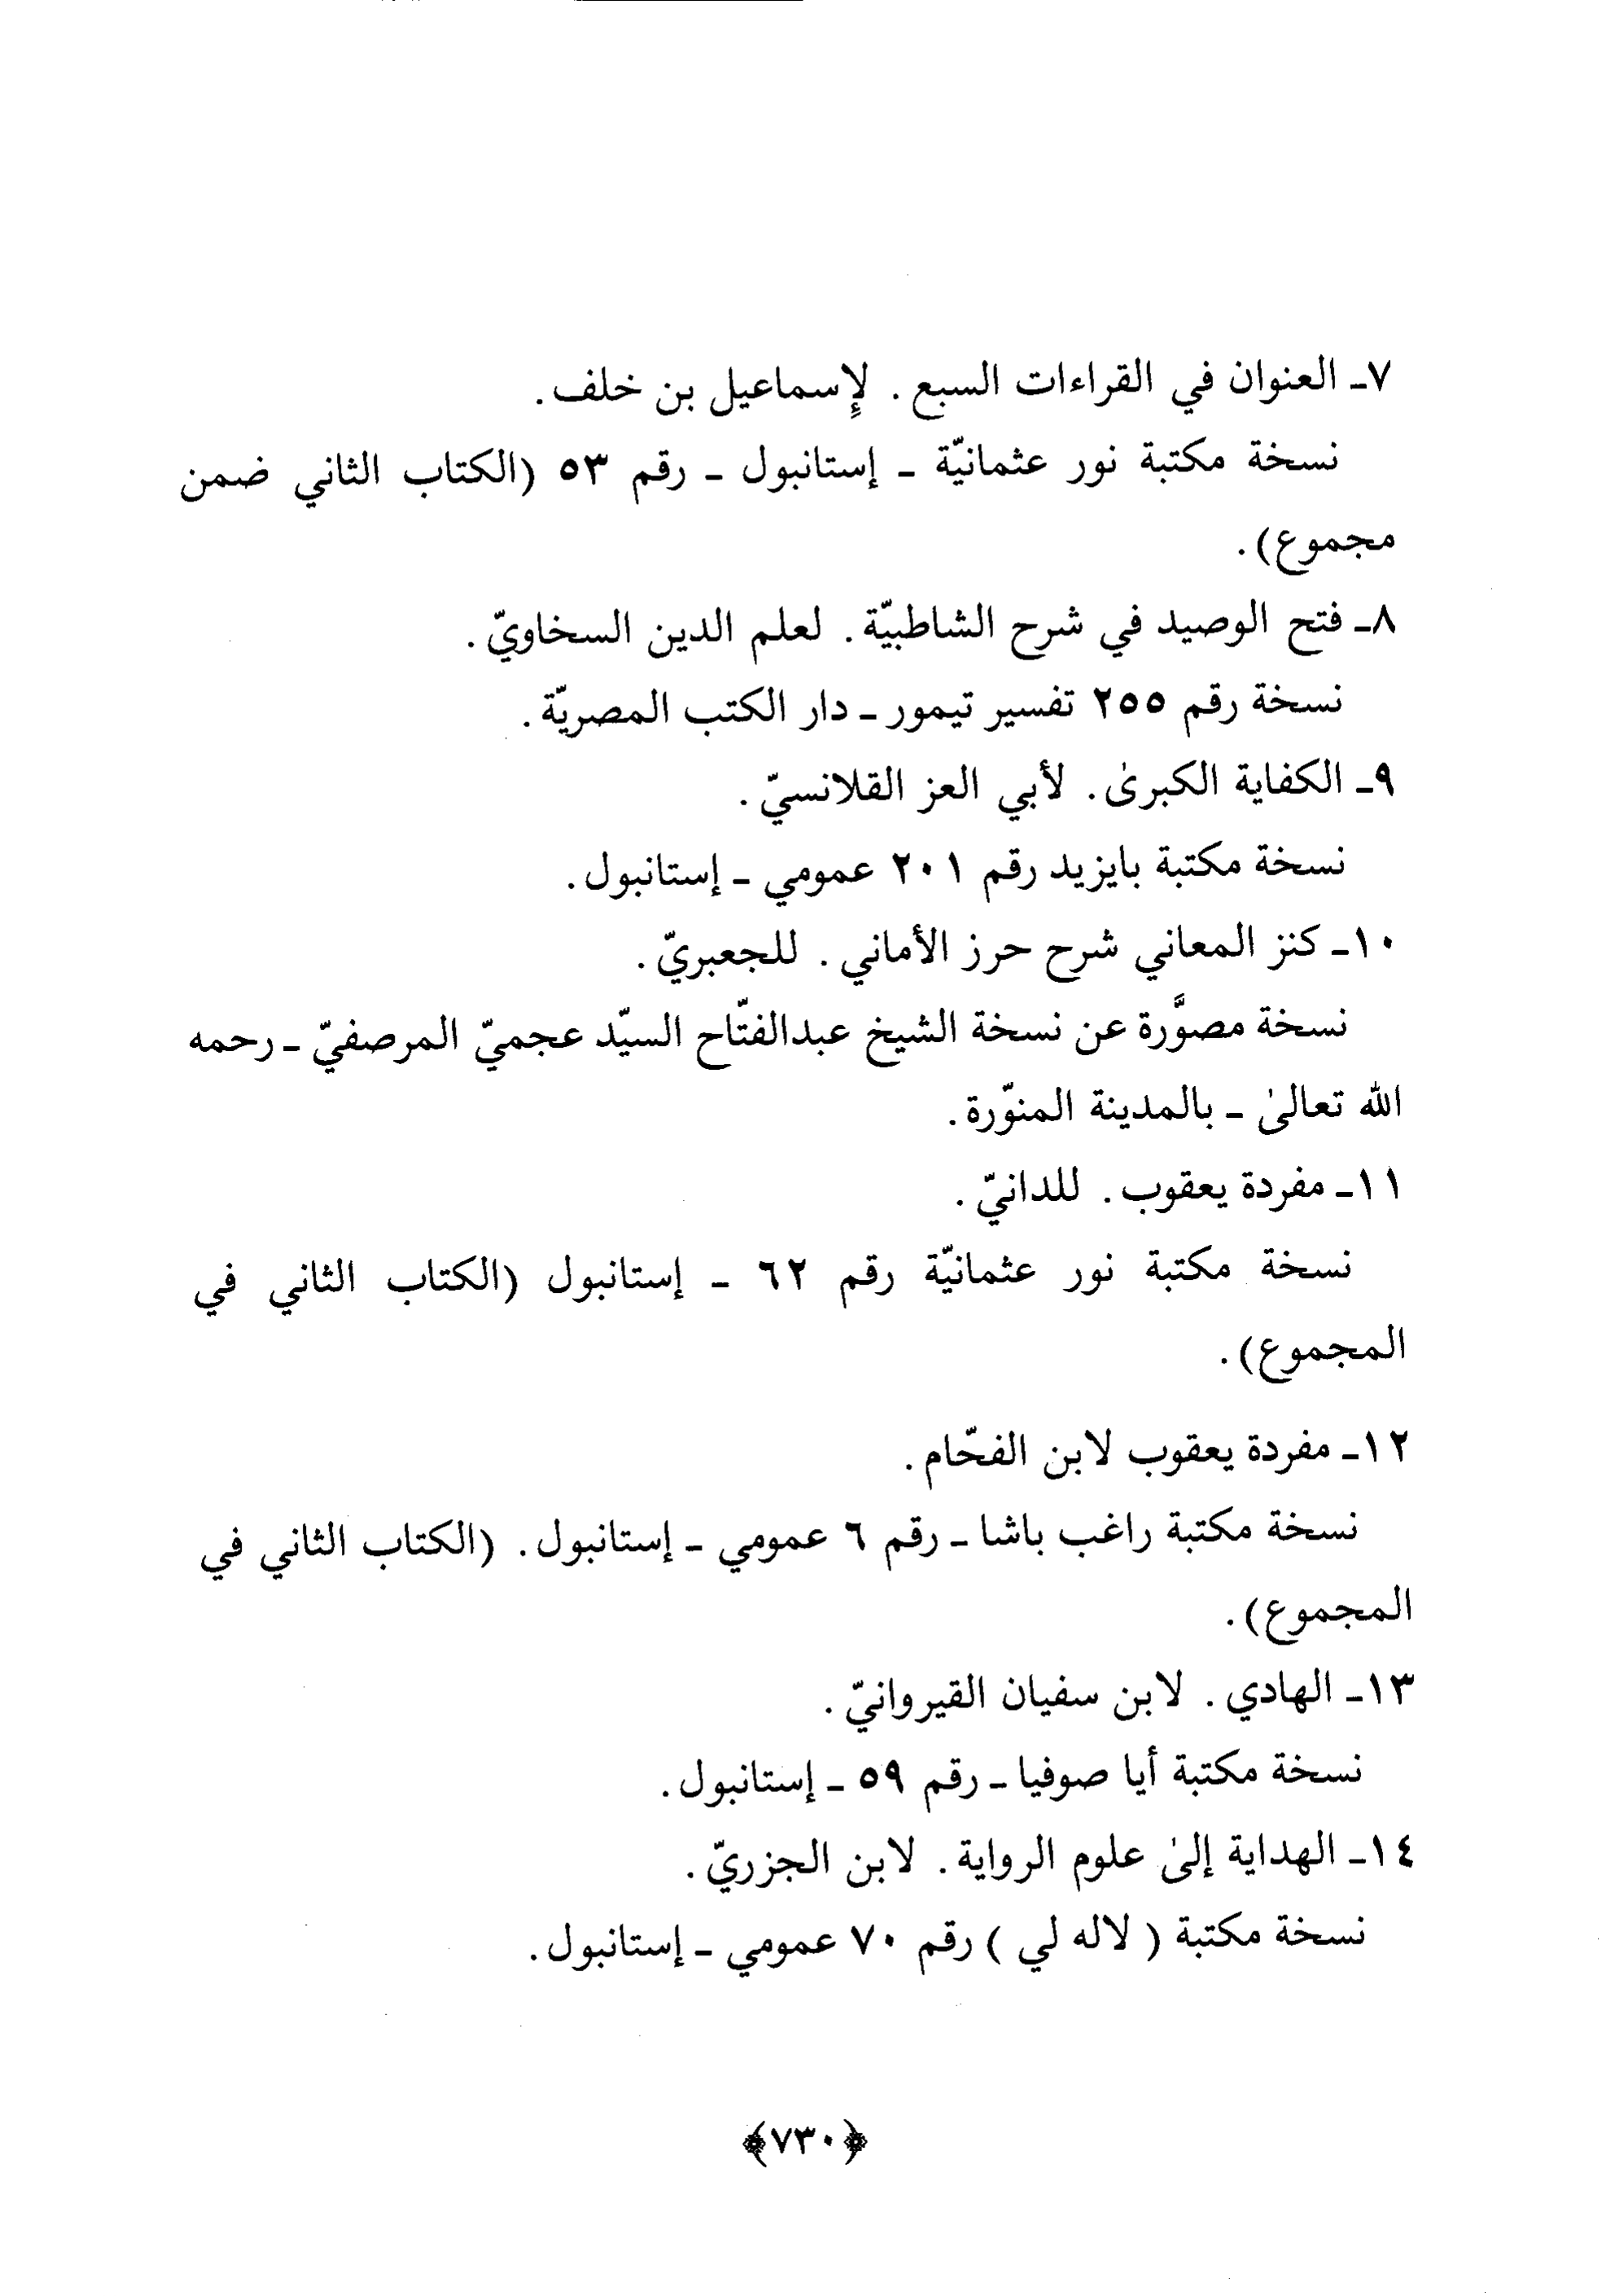 ٧ـ العنوان في القراءات السبع. لإسماعيل بن خلف.
نسخة مكتبة نور عثمانيّة ـ إستانبول ـ رقم ٥٣ (الكتاب الثاني ضمن
مجموع).
٨ـ فتح الوصيد في شرح الشاطبيّة. لعلم الدين السخاويّ.
نسخة رقم ٢٥٥ تفسير تيمور ـ دار الكتب المصريّة.
٩ـ الكفاية الكبرىٰ. لأبي العز القلانسيّ.
نسخة مكتبة بايزيد رقم ٢٠١ عمومي ـ إستانبول.
١٠ـ كنز المعاني شرح حرز الأماني. للجعبريّ.
نسخة مصوَّرة عن نسخة الشيخ عبدالفتّاح السيّد عجميّ المرصفيّ ـ رحمه
الله تعالىٰ ـ بالمدينة المنوّرة.
١١ـ مفردة يعقوب. للدانيّ.
نسخة مكتبة نور عثمانيّة رقم ٦٢ ـ إستانبول (الكتاب الثاني في
المجموع).
١٢ـ مفردة يعقوب لابن الفحّام.
نسخة مكتبة راغب باشا ـ رقم ٦ عمومي ـ إستانبول. (الكتاب الثاني في
المجموع).
١٣ـ الهادي. لابن سفيان القيروانيّ.
نسخة مكتبة أيا صوفيا ـ رقم ٥٩ ـ إستانبول.
١٤ـ الهداية إلىٰ علوم الرواية. لابن الجزريّ.
نسخة مكتبة ( لاله لي ) رقم ٧٠ عمومي ـ إستانبول.
﴿٧٣٠﴾